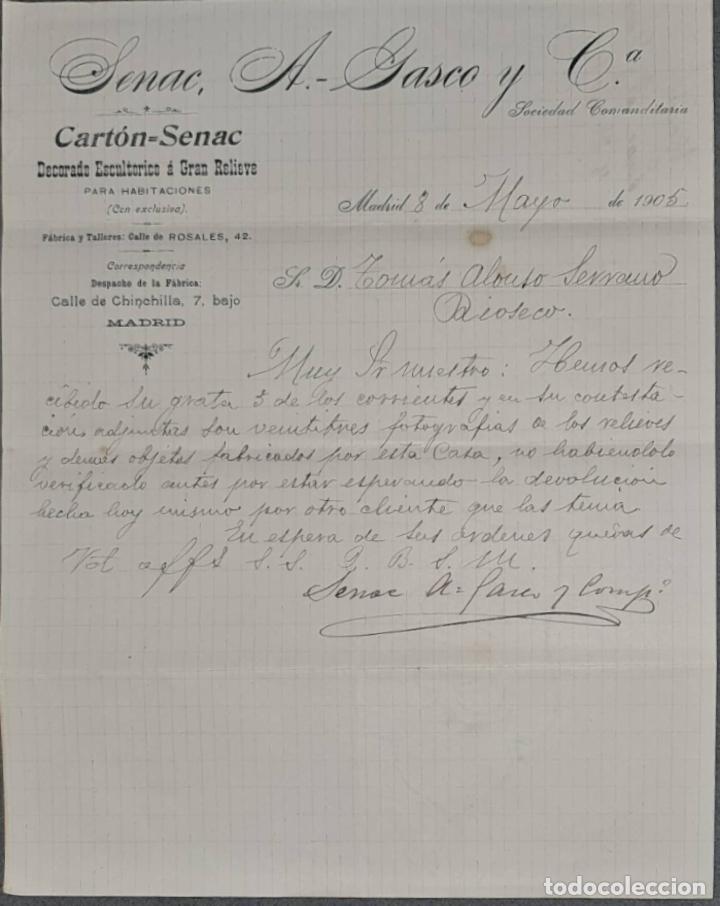 Senac, A.-Gasco y C.ª
Sociedad Comanditaria
Cartón=Senac
Decorado Escultorico á Gran Relieve
PARA HABITACIONES
(Con exclusiva).
Fábrica y Talleres: Calle de ROSALES, 42.
Correspondencia
Despacho de la Fábrica:
Calle de Chinchilla, 7, bajo
MADRID
Madrid 8 de Mayo de 1905
Sr. D. Tomás Alonso Serrano
Rioseco.
Muy Sr nuestro: Hemos re-
cibido su grata 3 de los corrientes y en su contesta-
ción, adjuntas son veintitres fotografias de los relieves
y demás objetos fabricados por esta Casa, no habiendolo
verificado antes por estar esperando la devolución
hecha hoy mismo por otro cliente que las tenia.
En espera de sus ordenes quedas de
Vd. affs S. S. Q. B. S. M.
Senac A= Gasco y Comp.ª
todocoleccion